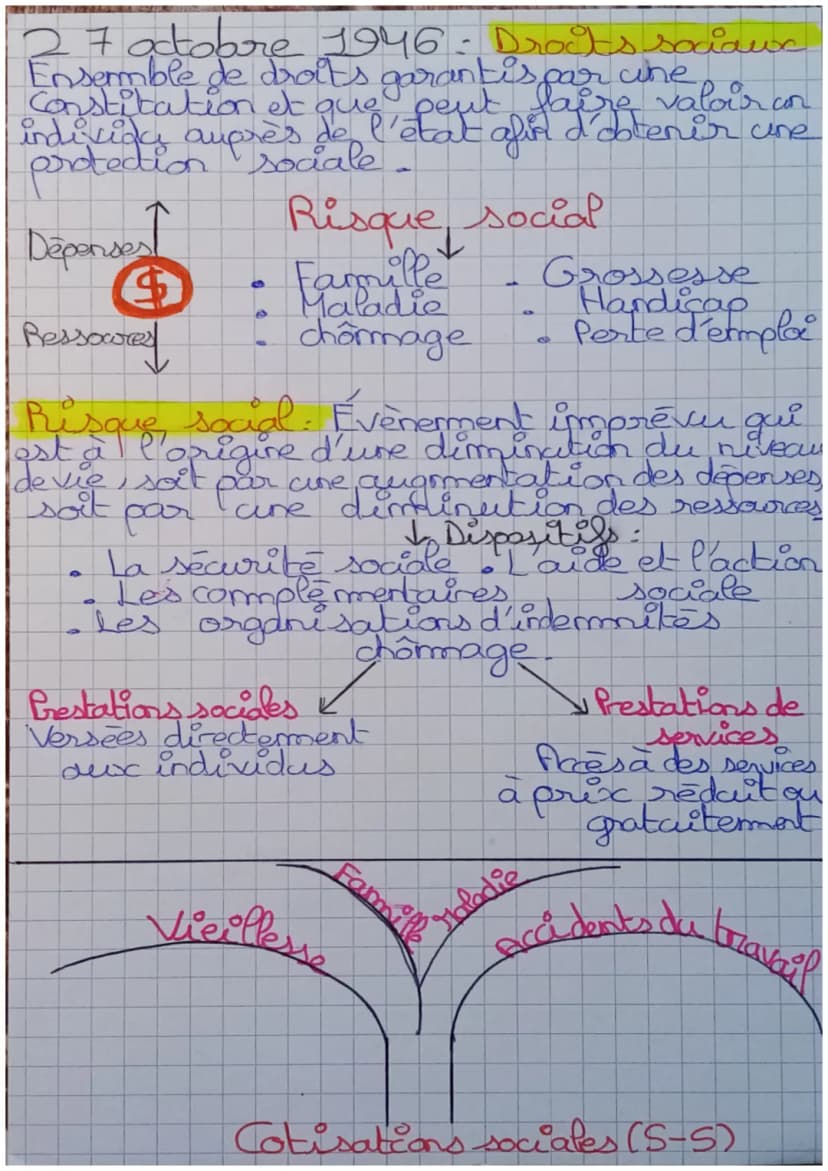 27 octobre 1946: Droits sociaux
Ensemble de droits garantis par une
Constitution et que peut faire valoir un
individu auprès de l'état afin d'obtenir une
protection sociale.
Risque social
Dépenses
$
Ressources
• Famille - Grossesse
• Maladie • Handicap
• chômage • Perte d'emploi
Risque social: Évènement imprévu qui
est à l'origine d'une diminution du niveau
de vie, soit par une augmentation des dépenses,
soit par une diminution des ressources
↓ Dispositifs:
• La sécurité sociale • L'aide et l'action
• Les complémentaires sociale
• Les organisations d'indemnités
chômage.
Prestations sociales
Versées directement
aux individus
Prestations de
services
Accès à des services
à prix réduit ou
gratuitement
Vieillesse
Famille
Maladie
Accidents du travail
Cotisations sociales (S-S)